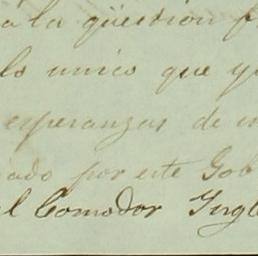 á la qüestion f
lo unico que y
esperanzas de
ado por este Gob
el Comodor Yngl